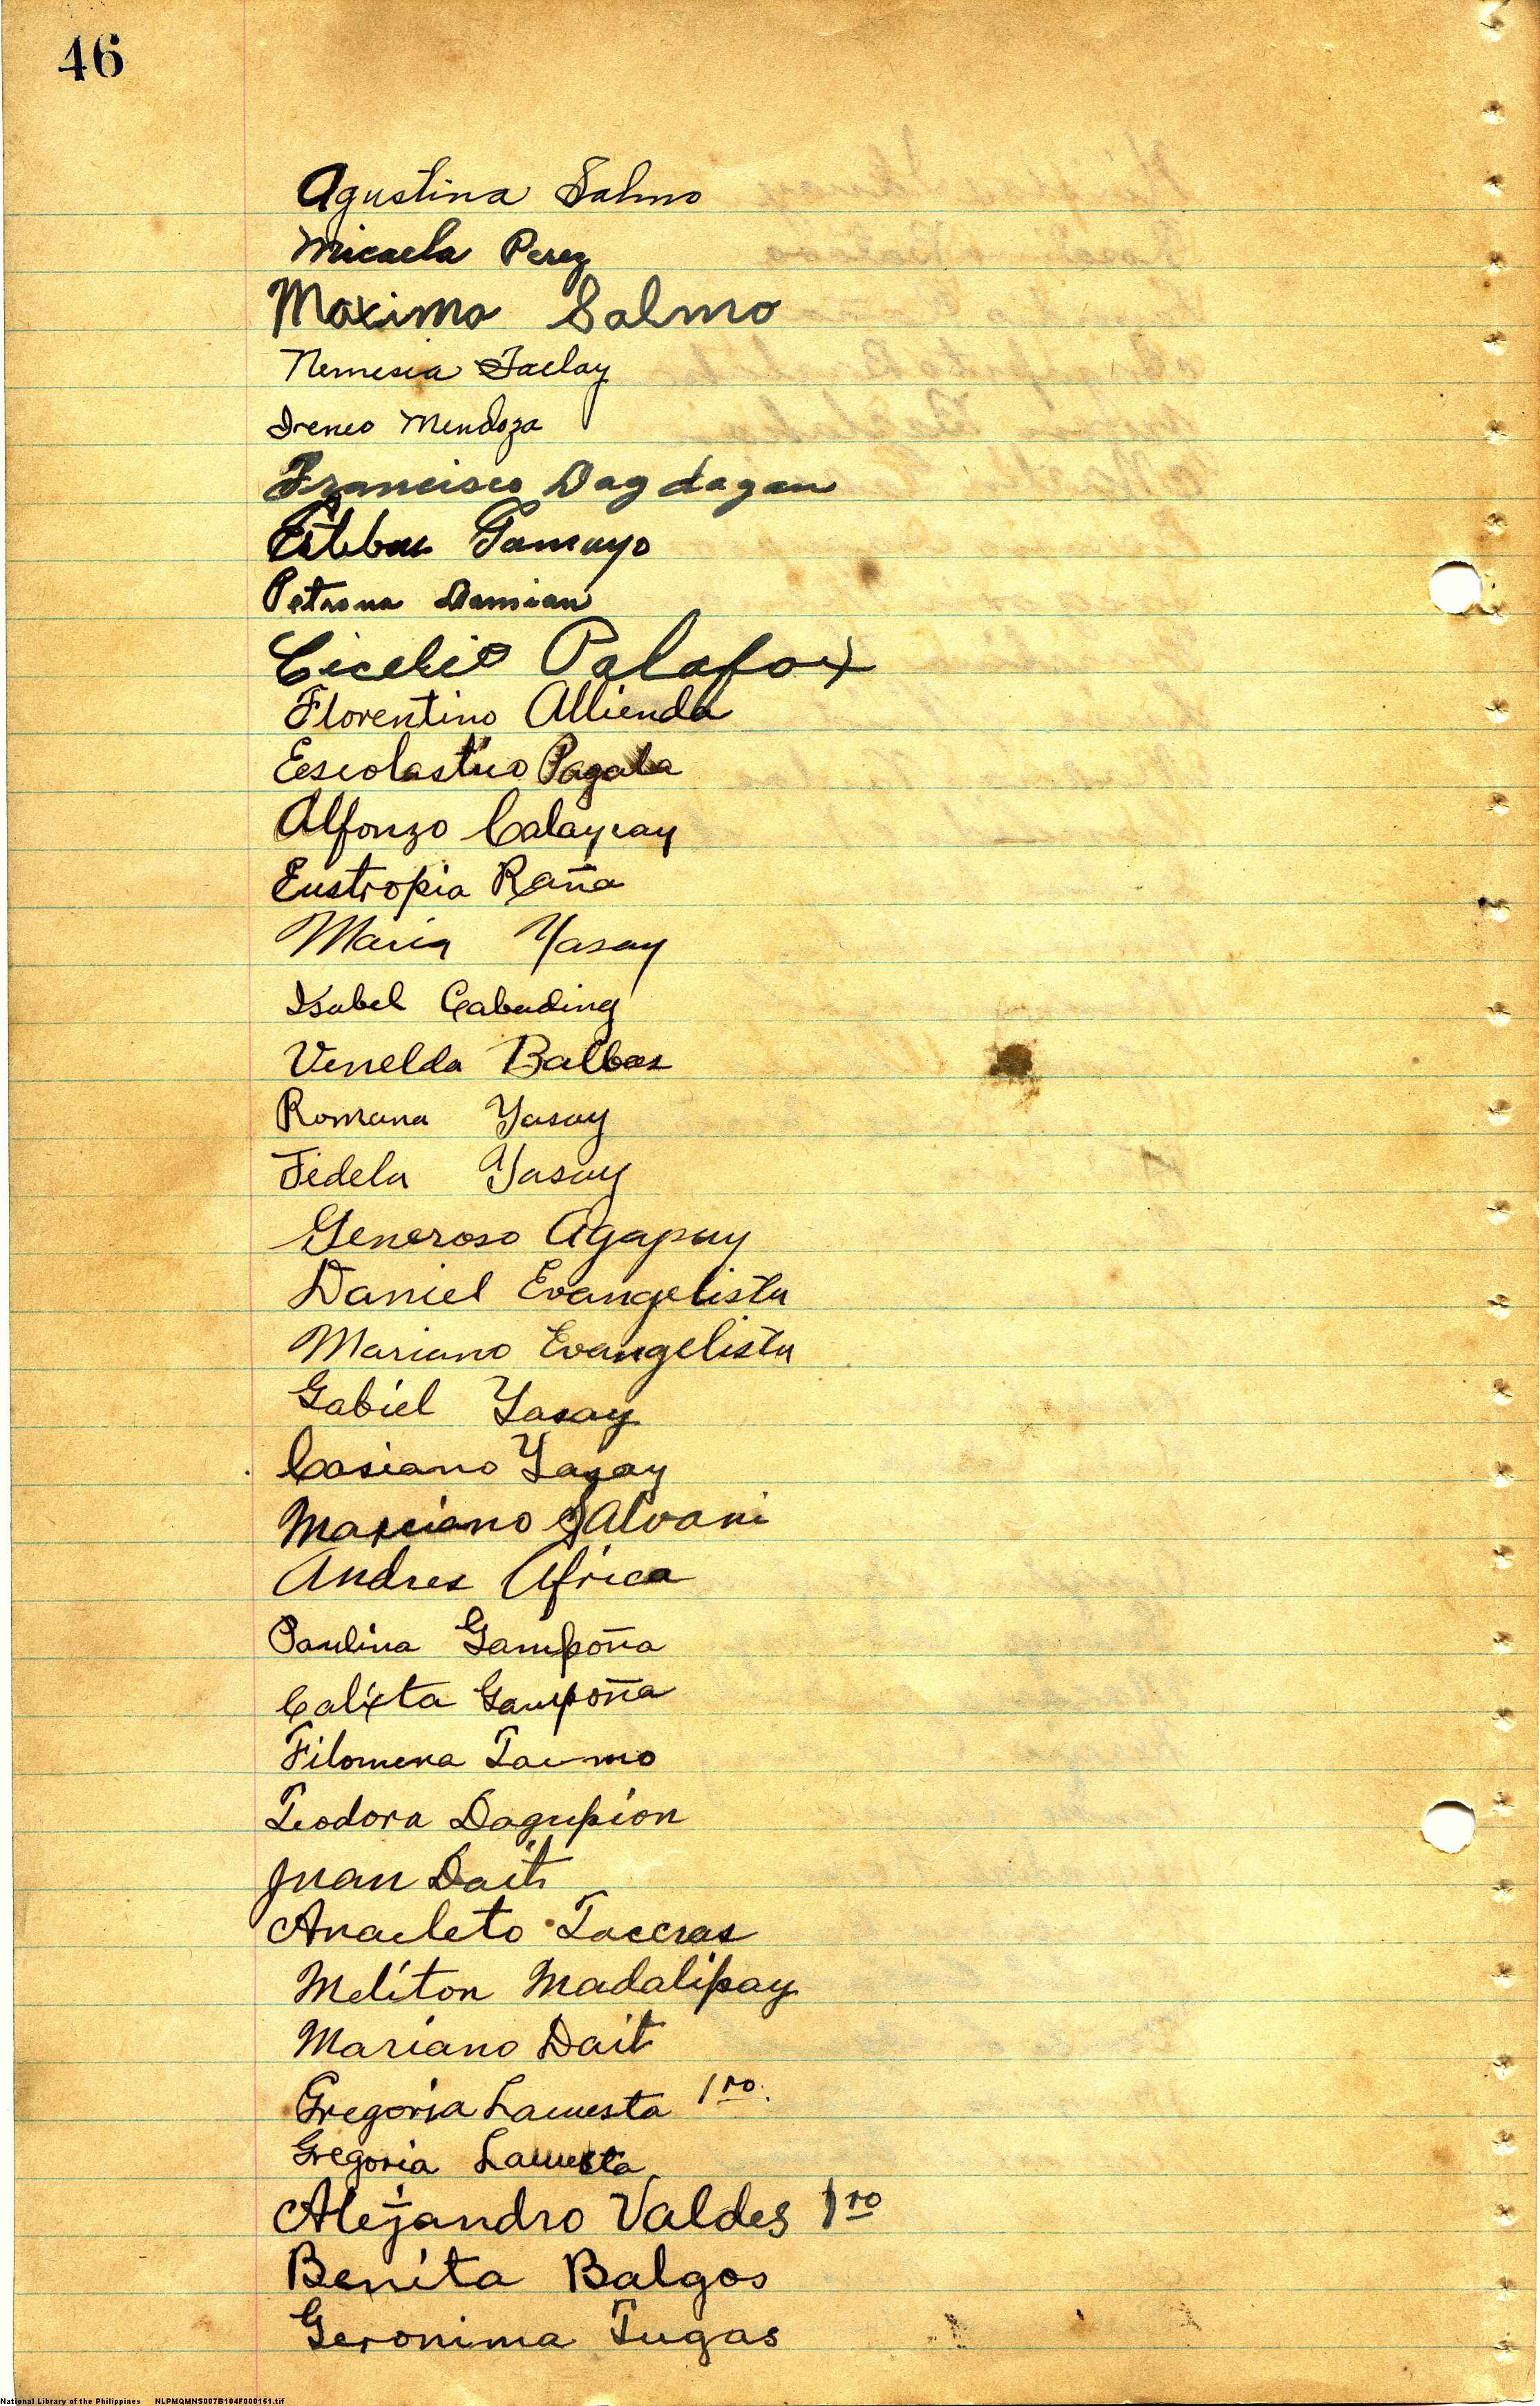 46
Agustina Salmo
Micaela Perez
Maximo Salmo
Nemesia Taclay
Ireneo Mendoza
Francisco Dagdagan
Esteban Gamayo
Petrona Damian
Cicelio Palafox
Florentino Allienda
Escolastico Pagala
Alfonzo Calaycay
Eustropia Raña
Maria Yasay
Isabel Cabuding
Venelda Balbas
Romana Yasay
Fidela Yasay
Generoso Agapay
Daniel Evangelista
Mariano Evangelista
Gabiel Yasay
Casiano Yasay
Marciano Salvani
Andres Africa
Paulina Gampoña
Calixta Gampoña
Filomena
Teodora Dagupion
Juan Dait
Anacleto Taccras
Meliton Madalipay
Mariano Dait
Gregoria Lacuesta 1ro.
Gregoria Lacuesta
Alejandro Valdes 1ro
Benita Balgos
Geronima Tugas
National Library of the Philippines NLPMQMNS007B104F000151.tif